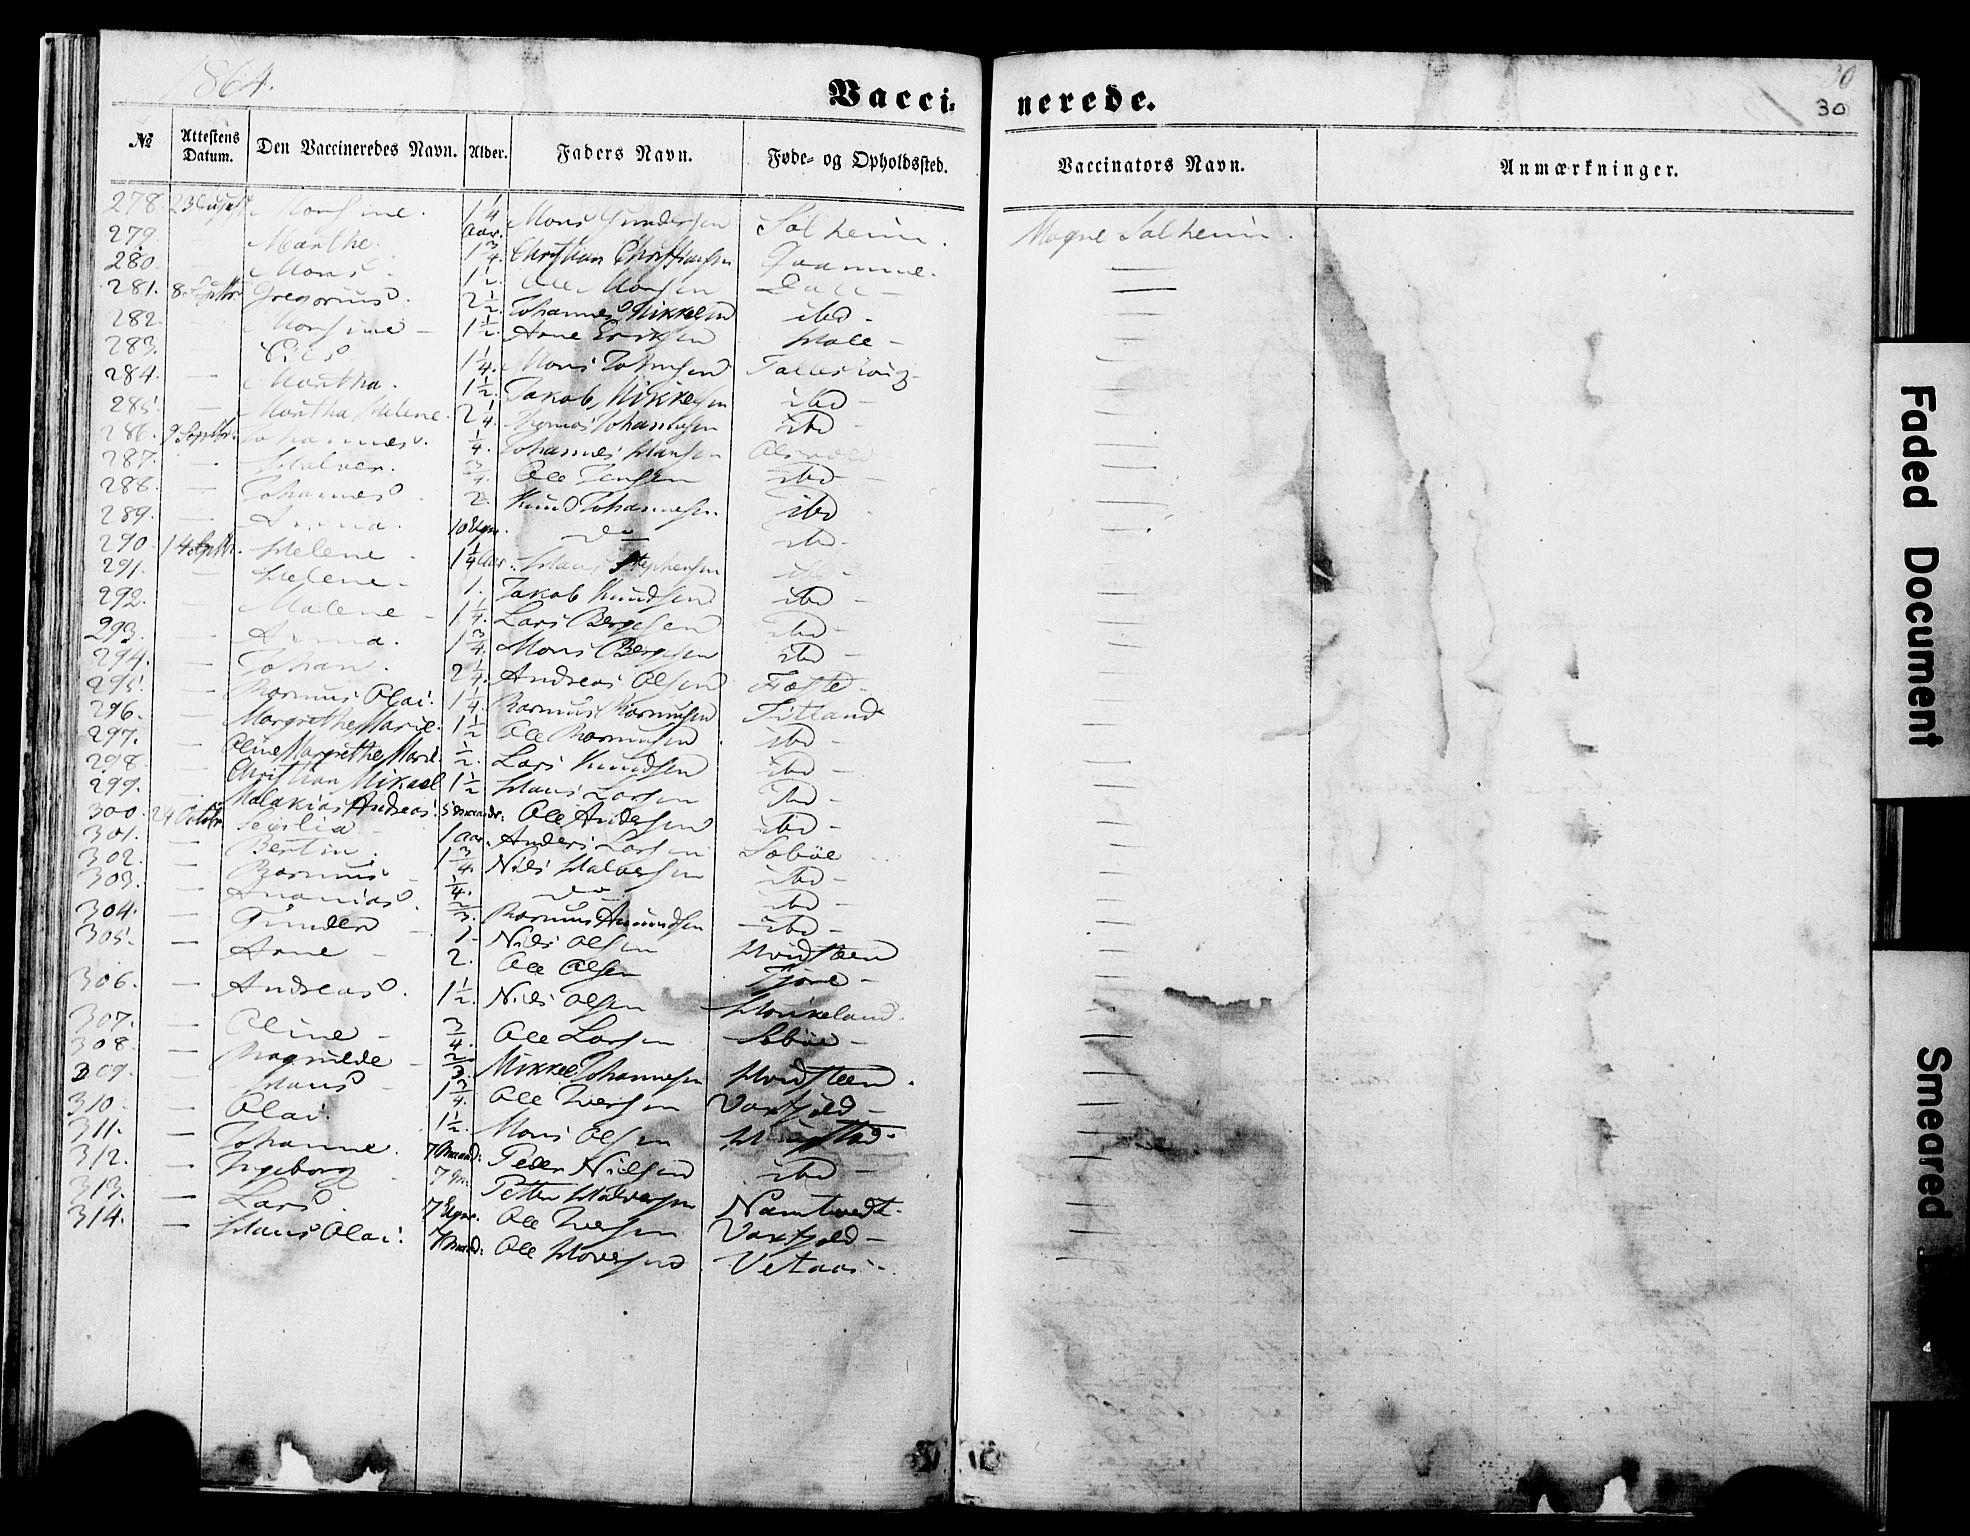 1864.
Vacci- nerede.
30
30
№ Attestens Datum. Den Vaccineredes Navn. Alder. Faders Navn. Føde- og Opholdssted. Vaccinators Navn. Anmærkninger.
278. 23 August Monsine. 1 1/4 Aar. Mons Gundersen Salheim. Magne Salheim.
279. — Marthe. 1 3/4 Christian Christiansen Qvamme.
280. — Mons. 1 1/2. Ole Monsen Dale —
281. 8 Septbr. Gregorius. 2 1/2 Johannes Mikkelsen ibd —
282. Monsine — 1 1/2. Arne Eriksen
283. — Nils 1 1/4. Mons Johnsen
284. — Martha. 1 1/2. Jakob Mikkelsen ibd —
285. — Martha Helene. 2 1/4. Thomas Johannesen ibd —
286. 9 Septbr. Johannes. 1/4. Johannes Hansen
287. — Halver. 3/4. Ole Jensen ibd —
288. — Johannes. 2. Knud Johannesen ibd —
289. — Anna. 10 Ugr. do ibd —
290. 14 Septbr. Helene — 1 1/4 Aar. Hans Stephensen ibd —
291. — Helene — 1. Jakob Knudsen ibd —
292. — Malene — 1 1/4. Lars Bergesen ibd —
293. — Anna. 1 3/4. Mons Bergesen ibd —
294. — Johan. 2 1/4. Andreas Olsen Fæste —
295. — Rasmus Olai. 1 1/4. Rasmus Rasmusen Titland
296. — Margrethe Marie. 1 1/2 Ole Rasmusen ibd —
297. — Oline Margrethe Marie. 1/2. Lars Knudsen ibd —
298. — Christian Mikael 1 1/2 Hans Larsen ibd —
299. — Malakias Andreas. 5 Maander. Ole Andersen ibd —
300. 24 Octobr. Sesilia — 1 Aar. Anders Larsen Sæbøe
301. — Bertin. 1 3/4. Nils Halversen ibd —
302. — Rasmus — 1/4. do ibd —
303. — Ananias. 2/3. Rasmus Amundsen ibd —
304. — Gunder — 1. Nils Olsen Hvidsteen
305. — Arne — 2. Ole Olsen
306. — Andreas. 1 1/2. Nils Olsen
307. — Oline — 3/4. Ole Larsen Sebøe —
308. — Ragnilde — 2/3. Mikkel Johannesen Hvidsteen.
309. — Hans — 1 3/4. Ole Iversen Vaxfjeld —
310. — Olai. 1 1/2. Mons Olsen
311. — Johanne. 7 Maand: Peder Nielsen ibd —
312. — Ingeborg — 7 Petter Halversen Namtvedt.
313. — Lars. 7 Ugr. Ole Iversen Vaxfjeld —
314. — Hans Olai. 7 Maand: Ole Hovesen Vetaas —
Faded Document
Smeared